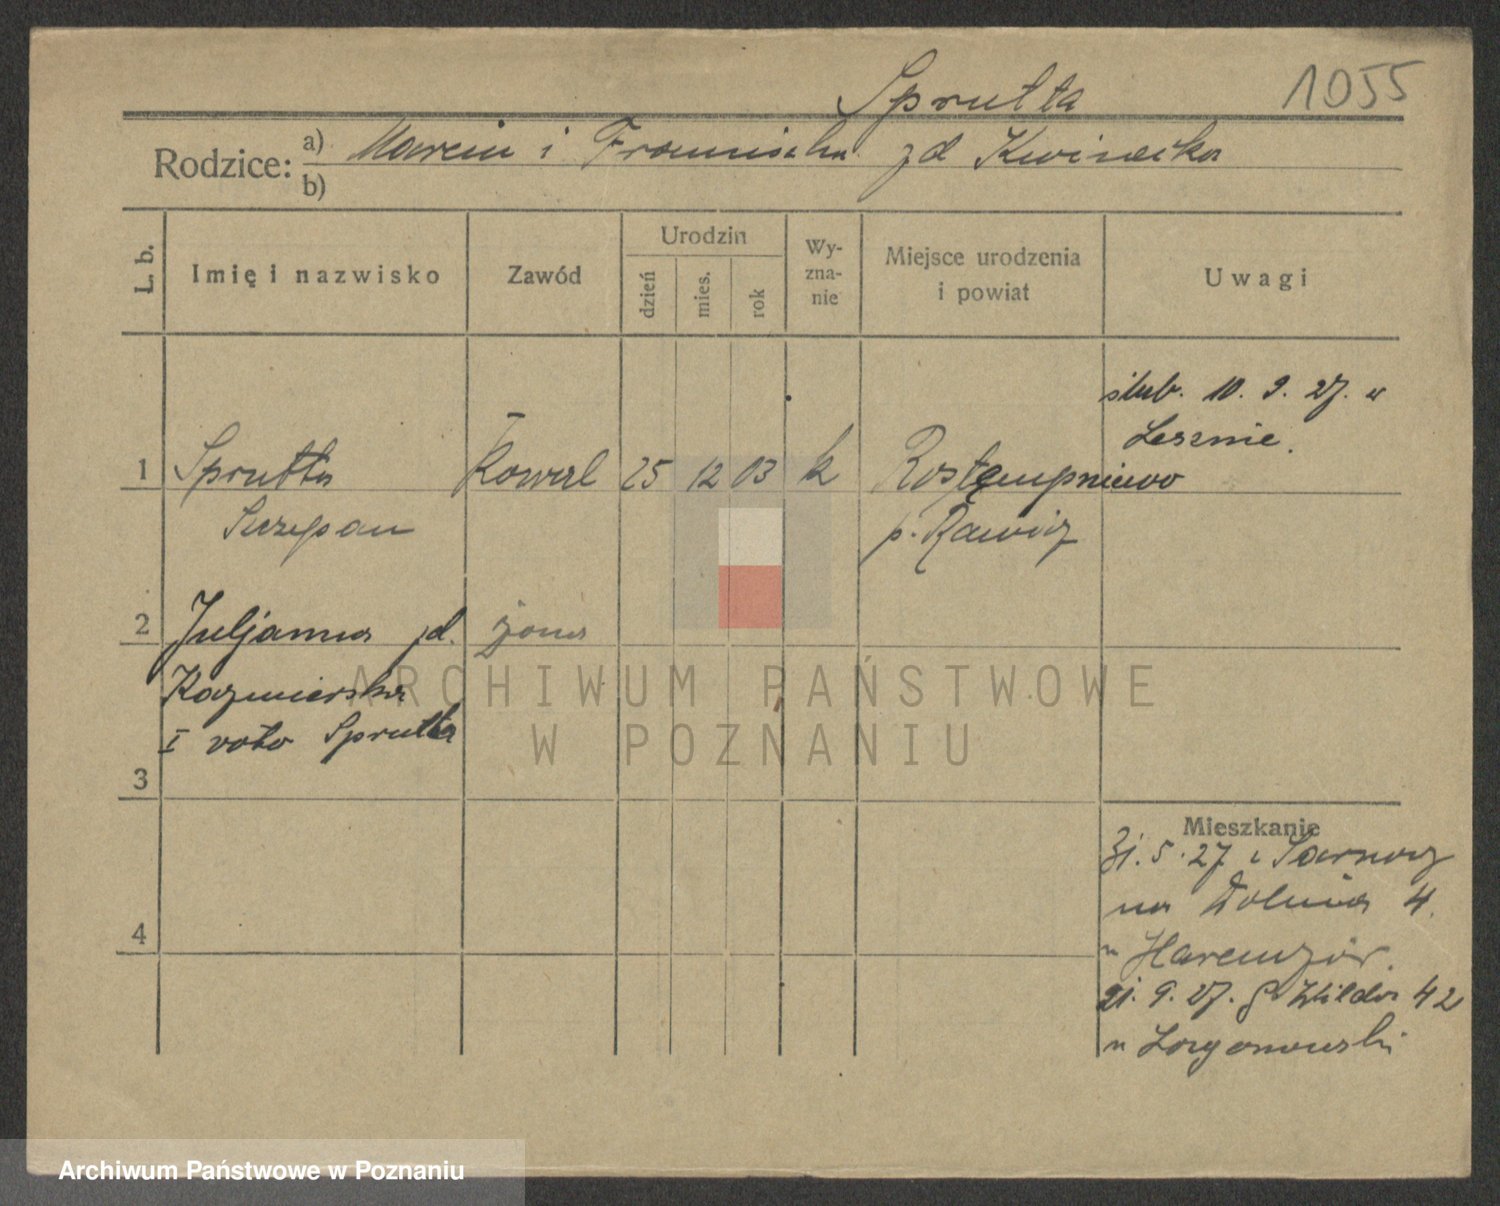 Sprutta 1055
Rodzice: a) Marcin i Franciszka zd Kwinecka
b)
L. b. Imię i nazwisko Zawód Urodzin dzień mies. rok Wyznanie Miejsce urodzenia i powiat Uwagi
ślub. 10. 9. 27. w
Lesznie.
1 Sprutta Kowal 25 12 03 k Rostempniewo
Szczepan p. Rawicz
2 Juljanna zd. żona
Kazmierska
I voto Sprutta
3
Mieszkanie
31. 5. 27 z Sarnowy
na Dolnia 4.
4
21. 9. 27. G Wilda 42
ARCHIWUM PAŃSTWOWE
W POZNANIU
Archiwum Państwowe w Poznaniu